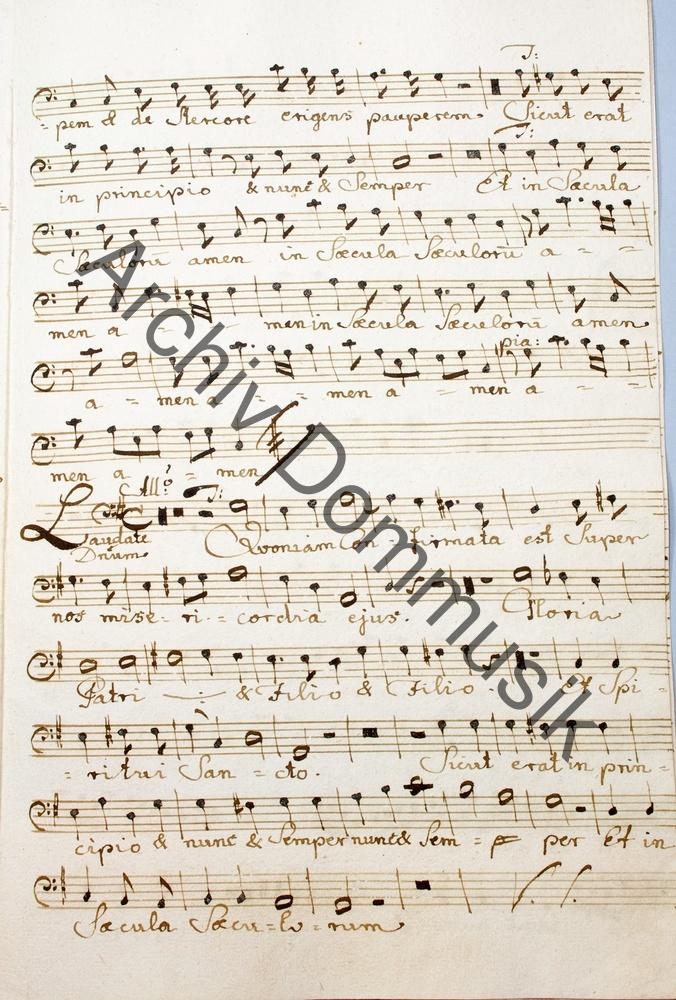 T:
= pem & de Stercore erigens pauperem Sicut erat
T:
in principio & nunc & Semper Et in Sæcula
Sæculorū amen in Sæcula Sæculorū a - -
men a - - men in Sæcula Sæculorū amen
pia:
a = men a - - men a = men a - -
men a - = men
All.º T:
Laudate Dnum Quoniam Con - firmata est Super
nos mise - ri - cordia ejus. Gloria
Patri & Filio & Filio. et Spi =
= ritui San = cto. Sicut erat in prin =
cipio & nunc & Semper nunc & Sem = per Et in
Sæcula Sæcu = lo = rum
Archiv Dommusik